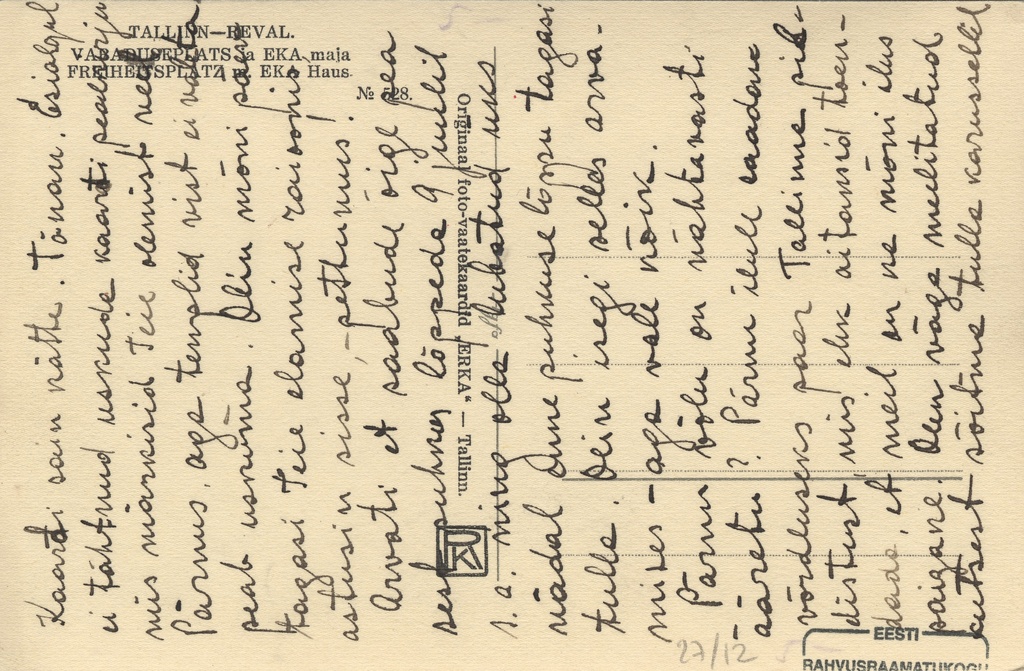 TALLINN—REVAL.
VABADUSEPLATS ja EKA maja
FREIHEITSPLATZ m. EKA Haus
№ 528.
Originaal foto-vaatekaardid „ERKA“ — Tallinn.
Kaardi sain kätte. Tänan. Esialgul
ei tahtnud uskuda kaardi pealkirja
mis märkisid Teie olemist veel
Pärnus, aga templid vist ei valeta
peab uskuma. Olin mõni päev
tagasi Teie elamise raioonis
astusin sisse, – pettumus!
Arvati et saabude õige pea
sest puhkus lõppeda 9 juulil
s. a. ning olla lubatud üks
nädal enne puhkuse lõppu tagasi
tulla. Olin isegi selles arva-
mises – aga vale kõik.
Pärnu võlu on nähtavasti
ääretu? Pärnu ilule saadame
võrdluseks paar Tallinna pil-
distust, mis ehk aitamid tõen-
dada, et meil on ka mõni ilus
paigake. Olen väga meelitatud
kutsest sõitma tulla karussellil
EESTI
RAHVUSRAAMATUKOGU
27/12